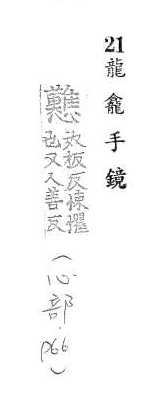 21 龍龕手鏡
戁奴板反悚懼
也又人善反
(心部.p66)